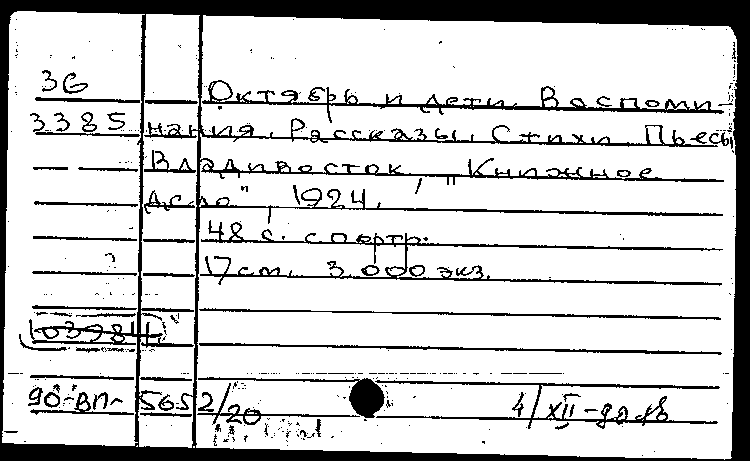 36 Октябрь и дети. Воспоми-
3385 нания. Рассказы. Стихи. Пьесы
Владивосток, "Книжное
дело", 1924.
48 с. с портр.
17 см. 3.000 экз.
1039841
90-ВП- 5652/20 4/XII-90